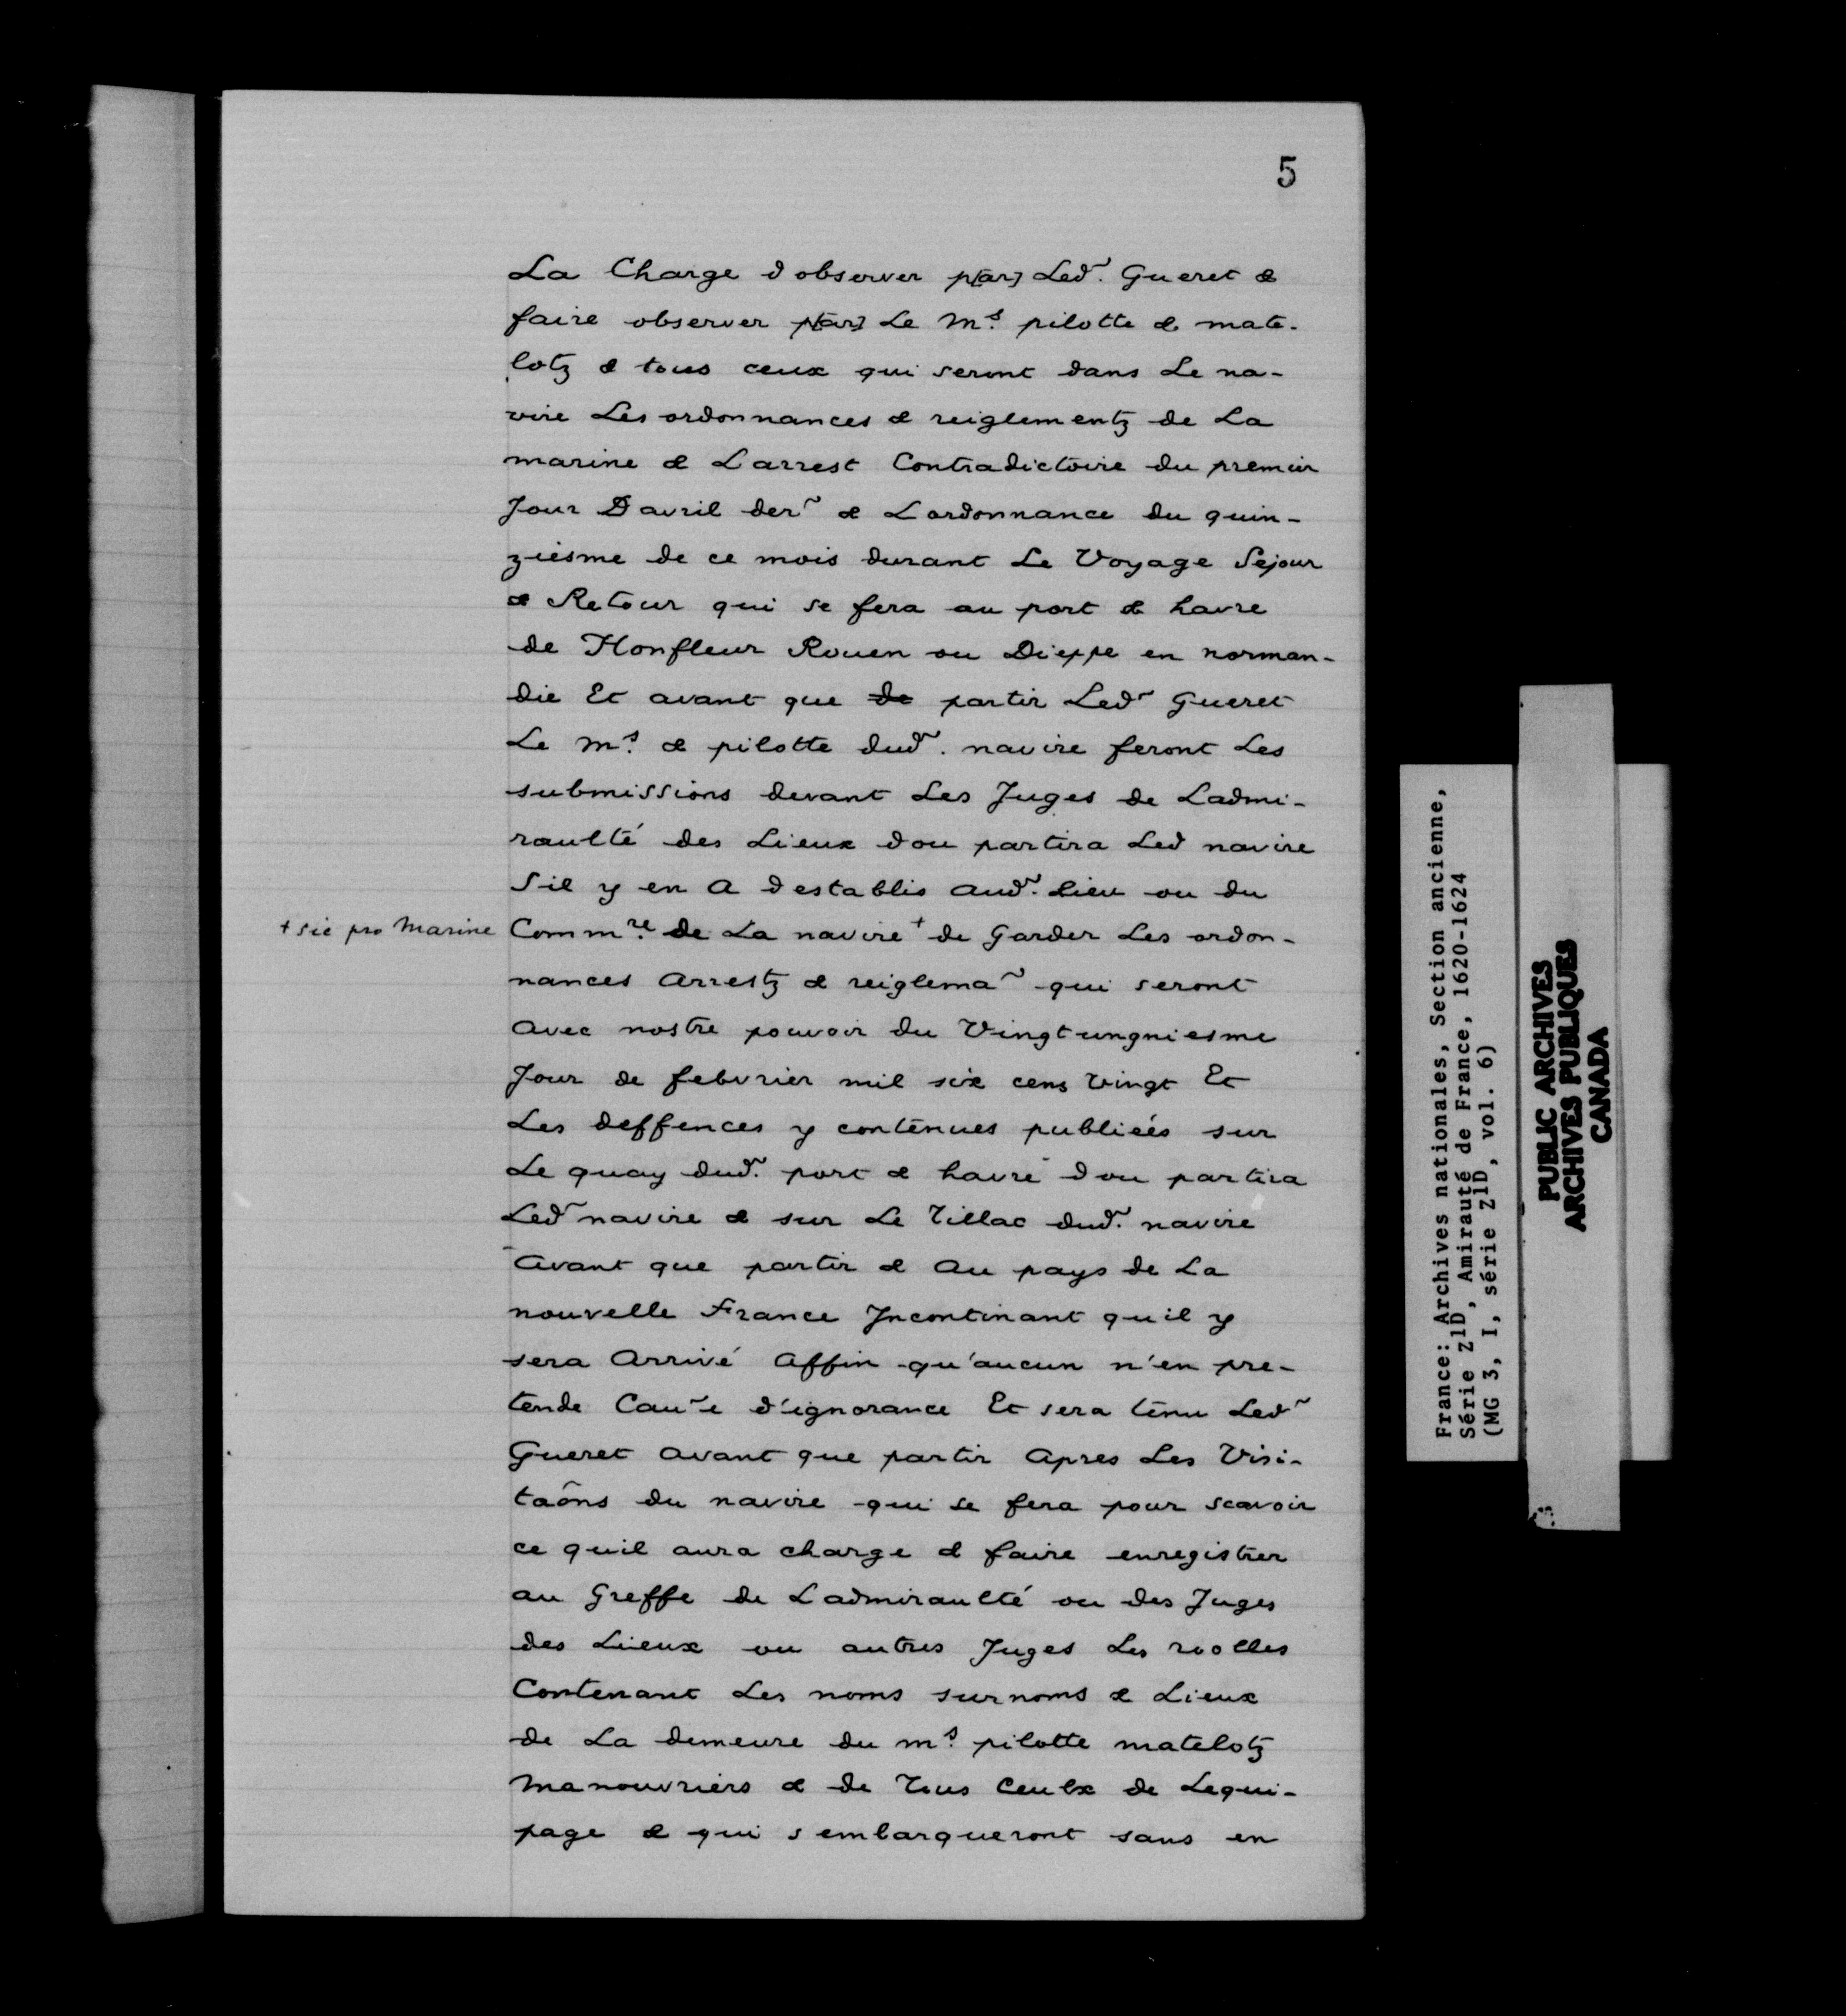 5
La Charge d observer p[ar] Led~. Gueret &
faire observer p[ar] Le Ms. pilotte & mate-
lotz & tous ceux qui seront dans Le na-
vire Les ordonnances & reiglementz de La
marine & Larrest Contradictoire du premier
Jour Davril der~ & Lordonnance du quin-
ziesme de ce mois durant Le Voyage Sejour
& Retour qui se fera au port & havre
de Honfleur Rouen ou Dieppe en norman-
die Et avant que de partir Led~ Gueret
Le Ms. & pilotte dud~. navire feront Les
submissions devant Les Juges de Ladmi-
raulté des Lieux dou partira Led navire
S il y en A d establis Aud~. lieu ou du
+ sic pro Marine
Commre. de La navire+ de Garder Les ordon-
nances Arrestz & reiglema~ qui seront
Avec nostre pouvoir du Vingtungniesme
Jour de febvrier mil six cens vingt Et
Les deffences y contenues publiées sur
Le quay dud~. port & havre dou partira
Led~ navire & sur Le Tillac dud~. navire
Avant que partir & Au pays de La
nouvelle France Jncontinant quil y
sera Arrivé Affin qu'aucun n'en pre-
tende Cau~e d'ignorance Et sera tenu Led~
Gueret Avant que partir Apres Les Visi-
taôns du navire qui se fera pour scavoir
ce quil aura charge & faire enregistrer
au Greffe de Ladmiraulté ou des Juges
des Lieux ou autres Juges Les roolles
Contenant Les noms surnoms & Lieux
de La demeure du ms. pilotte matelotz
Manouvriers & de Tous Ceulx de Lequi-
page & qui s embarqueront sans en
France: Archives nationales, Section ancienne,
Série Z1D, Amirauté de France, 1620-1624
(MG 3, I, série Z1D, vol. 6)
PUBLIC ARCHIVES
ARCHIVES PUBLIQUES
CANADA